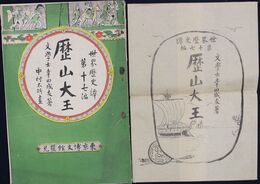 世界歴史譚
第十七編
歴山大王
文學士幸田成友著
中村不折畫
東京博文館發兌
世界歴史譚
第十七編
歴山大王
文學士幸田成友著